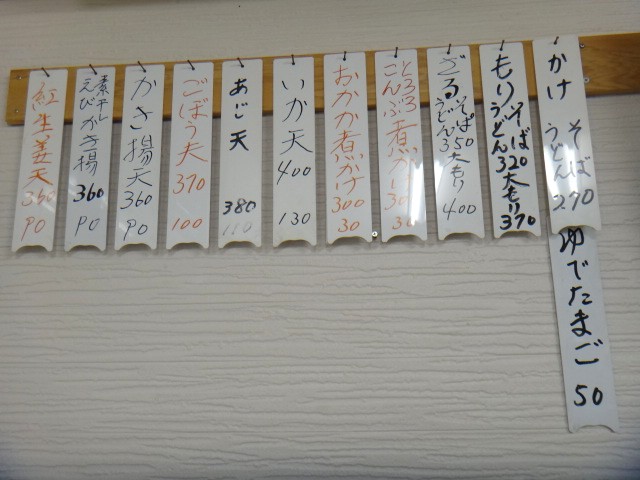 かけ そば うどん 270
ゆでたまご 50
もり そば うどん 320 大もり 370
ざる そば うどん 350 大もり 400
とろろ こんぶ 煮かけ 30
おかか煮かけ 300 30
いか天 400 130
あじ天 380 110
ごぼう天 370 100
かき揚天 360 90
素干し えびかき揚 360 90
紅生姜天 360 90